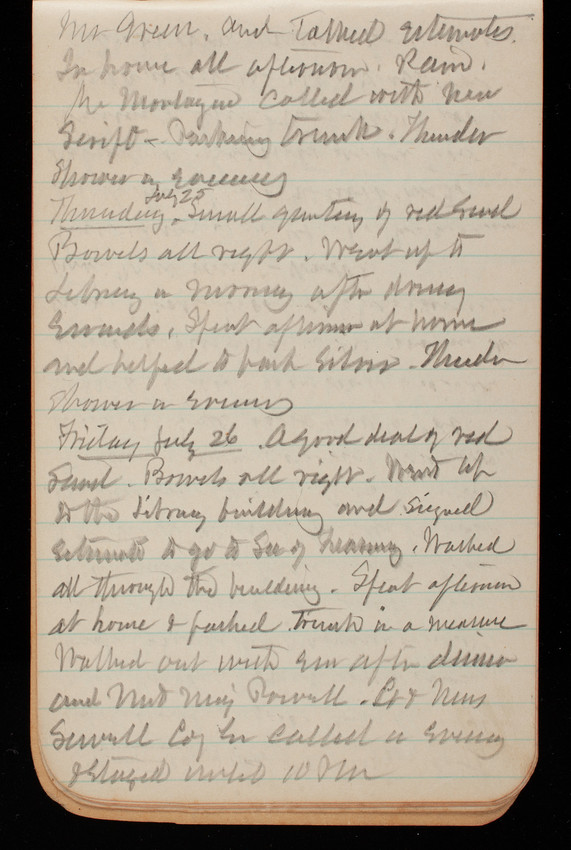 Mr Green, and talked estimates.
In house all afternoon. Rain.
Mr Montague called with new
Script - Packing trunk. Thunder
Shower in evening
July 25
Thursday. Small quantity of red Sand
Bowels all right. Went up to
Library in morning after doing
Errands. Spent afternoon at home
and helped to pack Silver. Thunder
Shower in evening
Friday July 26. A good deal of red
Sand. Bowels all right. Went up
to the Library building and signed
estimate to go to Sec of Treasury. Walked
all through the building. Spent afternoon
at home & packed trunk in a measure
Walked out with Em after dinner
and met Maj Powell. Lt & Mrs
Sewell Eng called in Evening
& Stayed until 10 PM